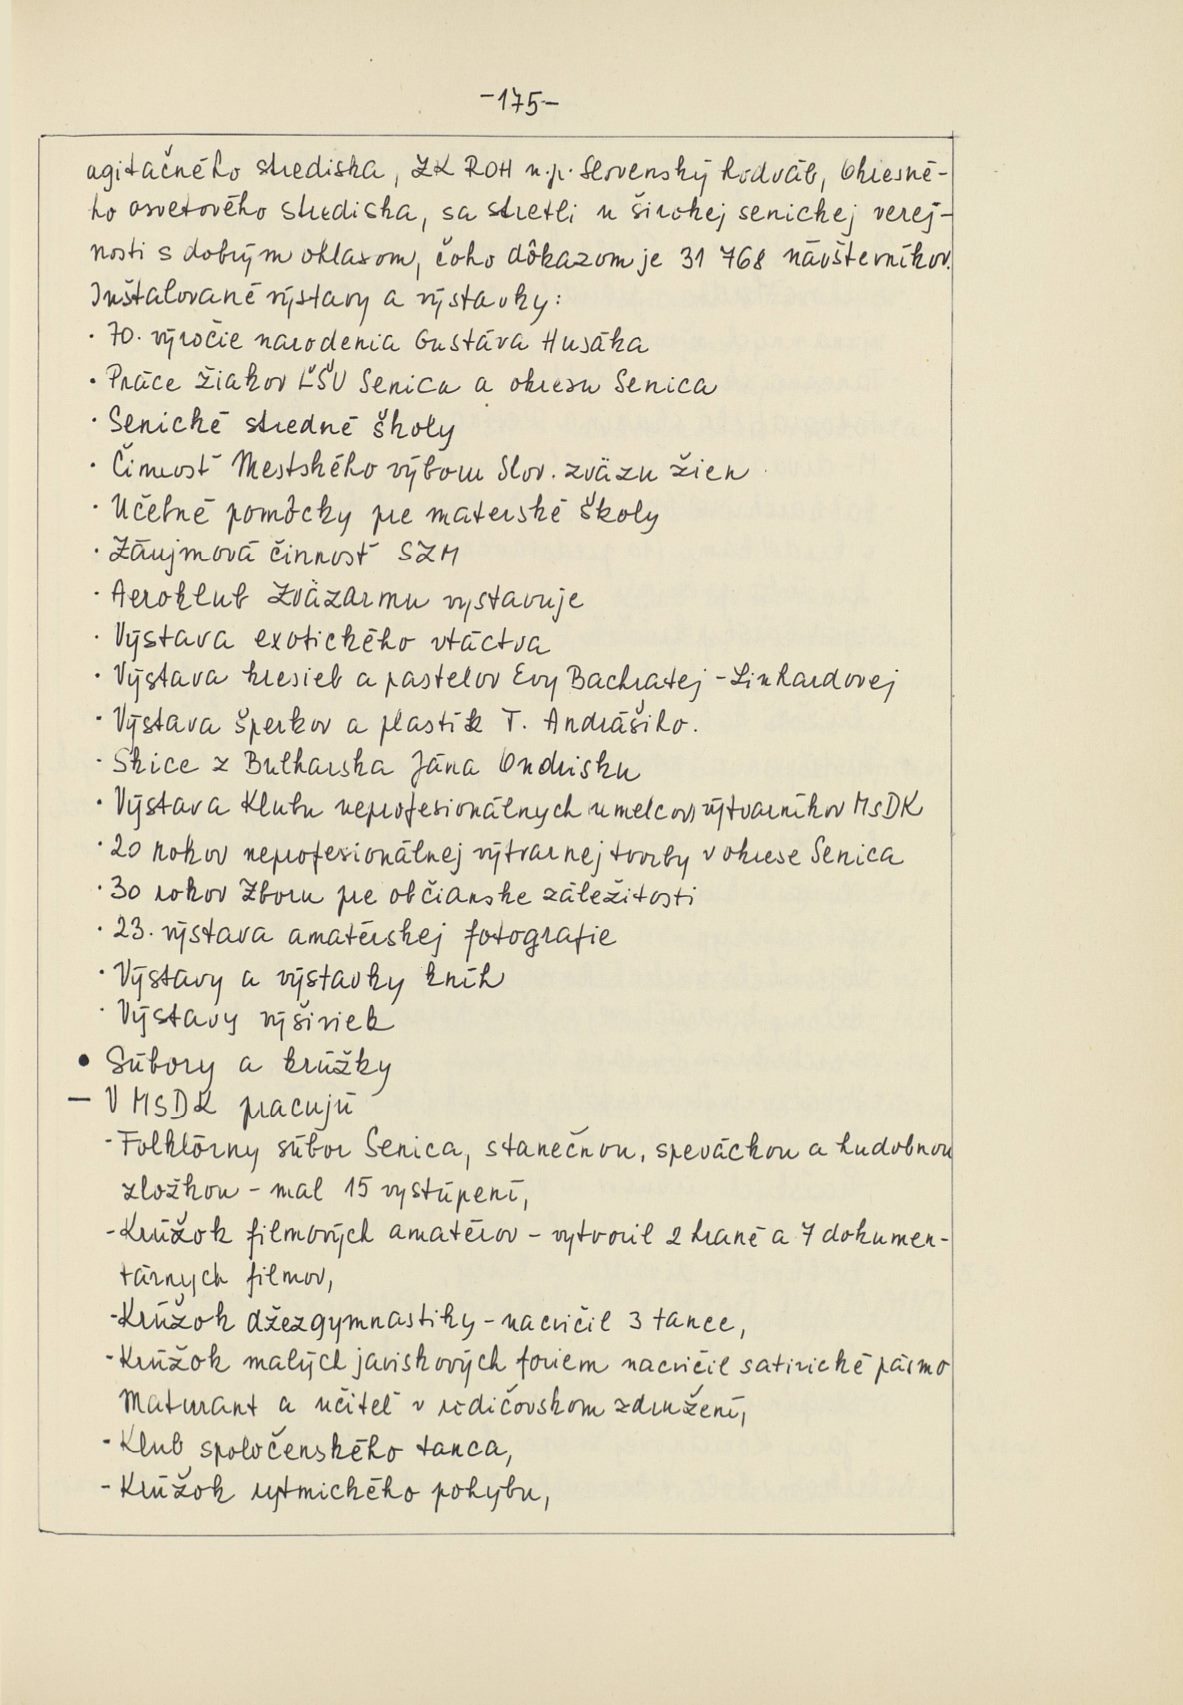 -175-
agitačného strediska, ZK ROH n.p. Slovenský hodváb, Okresné-
ho osvetového strediska, sa stretli u širokej senickej verej-
nosti s dobrým ohlasom, čoho dôkazom je 31 768 návštevníkov.
Inštalované výstavy a výstavky:
· 70. výročie narodenia Gustáva Husáka
· Práce žiakov ĽŠU Senica a okresu Senica
· Senické stredné školy
· Činnosť Mestského výboru Slov. zväzu žien
· Učebné pomôcky pre materské školy
· Záujmová činnosť SZM
· Aeroklub Zväzarmu vystavuje
· Výstava exotického vtáctva
· Výstava kresieb a pastelov Evy Bachratej - Linhardovej
· Výstava šperkov a plastík T. Andrášiho.
· Skice z Bulharska Jána Ondrisku
· Výstava Klubu neprofesionálnych umelcov výtvarníkov MsDK
· 20 rokov neprofesionálnej výtvarnej tvorby v okrese Senica
· 30 rokov Zboru pre občianske záležitosti
· 23. výstava amatérskej fotografie
· Výstavy a výstavky kníh
· Výstavy výšiviek
• Súbory a krúžky
— V MsDK pracujú
- Folklórny súbor Senica, s tanečnou, speváckou a hudobnou
zložkou - mal 15 vystúpení,
- Krúžok filmových amatérov - vytvoril 2 hrané a 7 dokumen-
tárnych filmov,
- Krúžok džezgymnastiky - nacvičil 3 tance,
- Krúžok malých javiskových foriem nacvičil satirické pásmo
Maturant a učiteľ v rodičovskom združení,
- Klub spoločenského tanca,
- Krúžok rytmického pohybu,